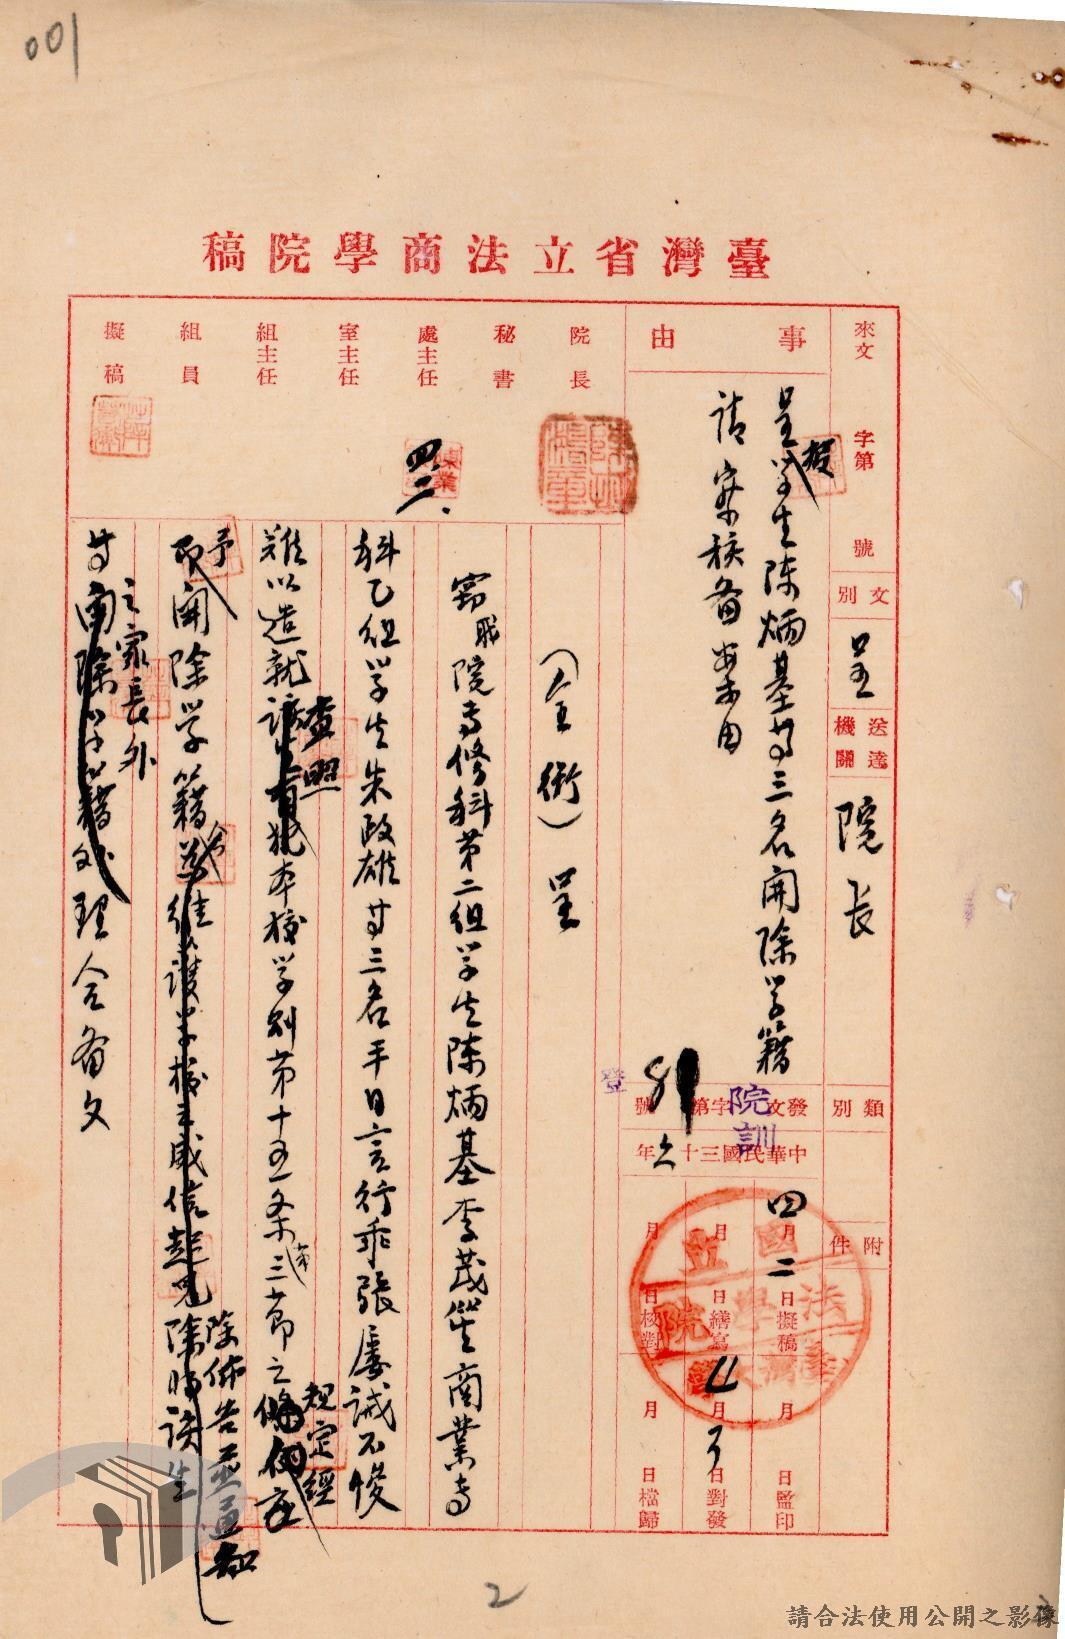 001
臺灣省立法商學院稿
來文 字第 號
文別 呈
送達機關 院長
類別
附件
事由
呈報學生陳炳基等三名開除學籍
請察核备案由
發文 院訓 字第 號
登
中華民國三十六年
四月二日擬稿
月 日繕寫
月 日校對
月 日監印
月 日對發
月 日檔歸
院長
秘書
處主任
四.二.
室主任
組主任
組員
擬稿
(全銜)呈
竊職院专修科第二組学生陳炳基李茂
商業专
科乙組学生朱政雄等三名平日言行乖張屢誡不悛
難以造就
查照
本校学则第十五条第三節之
規定經
予
開除学籍
除佈告並通知
該生
之家長外
等開除学籍
理合备文
2
請合法使用公開之影像